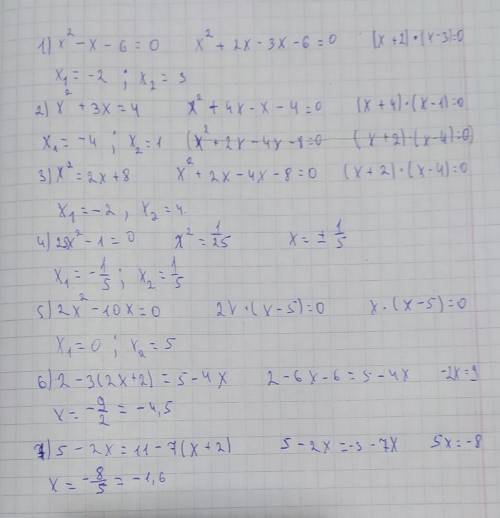 1) x² - x - 6 = 0 x² + 2x - 3x - 6 = 0 (x + 2) · (x - 3) = 0
x₁ = -2 ; x₂ = 3
2) x² + 3x = 4 x² + 4x - x - 4 = 0 (x + 4) · (x - 1) = 0
x₁ = -4 ; x₂ = 1 (x² + 2x - 4x - 8 = 0 (x + 2) · (x - 4) = 0)
3) x² = 2x + 8 x² + 2x - 4x - 8 = 0 (x + 2) · (x - 4) = 0
x₁ = -2 , x₂ = 4.
4) 25x² - 1 = 0 x² = 1/25 x = ± 1/5
x₁ = -1/5 ; x₂ = 1/5
5) 2x² - 10x = 0 2x · (x - 5) = 0 x · (x - 5) = 0
x₁ = 0 ; x₂ = 5
6) 2 - 3(2x + 2) = 5 - 4x 2 - 6x - 6 = 5 - 4x -2x = 9
x = -9/2 = -4,5
7) 5 - 2x = 11 - 7(x + 2) 5 - 2x = -3 - 7x 5x = -8
x = -8/5 = -1,6